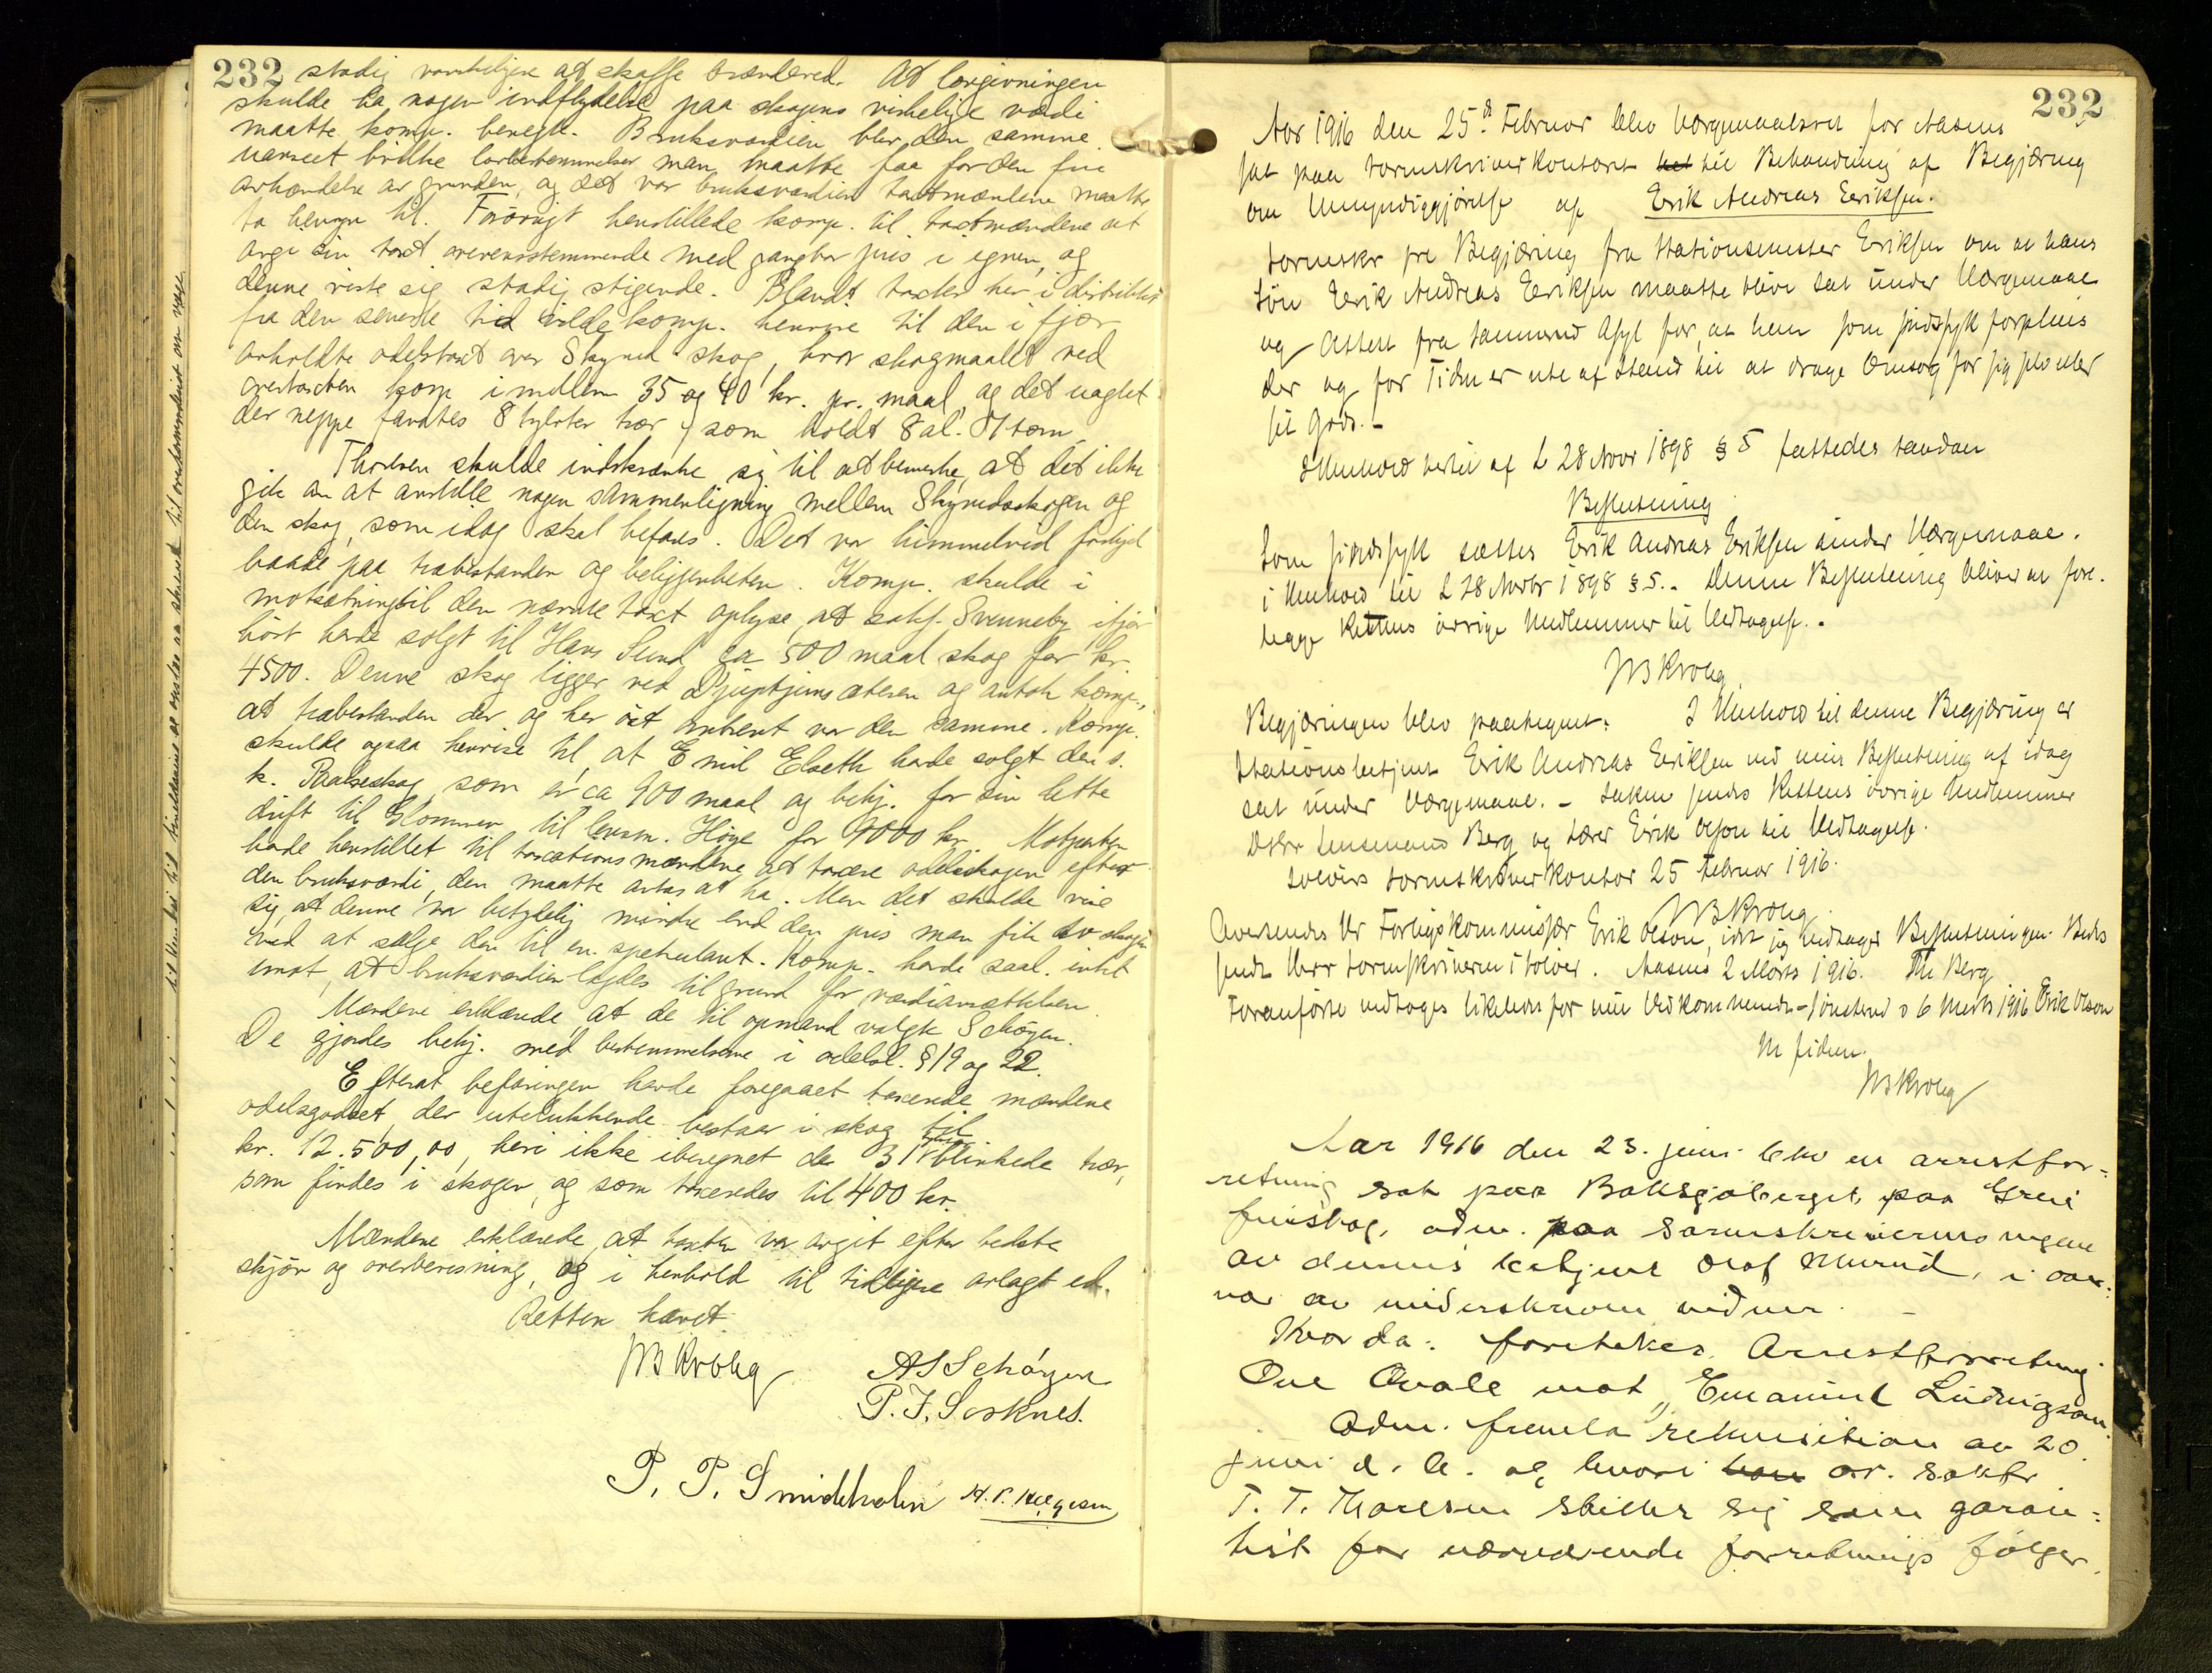 232
stadig vanskeligere at skaffe brændeved. At lovgivningen
skulde ha nogen indflydelse paa skogens virkelige værdi
maatte komp. benegte. Bruksværdien blev den samme
uanseet hvilke lovbestemmelser man maatte faa for den frie
avhændelse av grunden, og det var bruksværdien taxtmændene maatte
ta hensyn til. Forøvrigt henstillede komp. til taxtmændene at
avgi sin taxt overensstemmende med gangbar pris i egnen, og
denne viste sig stadig stigende. Blandt taxter her i distriktet
fra den seneste tid vilde komp. henvise til den i fjor
avholdte odelstaxt over Skynd skog, hvor skogmaalet ved
overtaxten kom imellem 35 og 40 kr. pr. maal, og det uagtet
der neppe fandtes 8 tylvter trær, som holdt 8 al. 7 tom.
Thoresen skulde indskrænke sig til at bemerke, at det ikke
gik an at anstille nogen sammenligning mellem Skyndsskogen og
den skog, som idag skal befares. Det var himmelvid forskjel
baade paa træbestanden og beliggenheten. Komp. skulde i
motsætning til den nævnte taxt oplyse, at sakf. Svenneby ifjor
høst hadde solgt til Hans Lund ca 500 maal skog for kr.
4500. Denne skog ligger ved Djuptjernsæteren og antok komp.,
at træbestanden der og her øst omtrent var den samme. Komp.
skulde ogsaa henvise til, at Emil Elseth hadde solgt den s.
k. Paalseskog, som er ca 900 maal og bekj. for sin lette
drift til Glommen til lensm. Høye for 9000 kr. Motparten
hadde henstillet til taxationsmændene at taxere odelsskogen efter
den bruksværdi, den maatte antas at ha. Men det skulde vise
sig, at denne var betydelig mindre end den pris man fik av skogen
ved at sælge den til en spekulant. Komp. hadde saal. intet
imot, at bruksværdien lægdes til grund for værdiansættelsen.
Mændene erklærede, at de til opmand valgte Schøyen.
De gjordes bekj. med bestemmelserne i odelsl. § 19 og 22.
Efterat befaringen havde foregaaet taxerede mændene
odelsgodset, der utelukkende bestaar i skog til
kr. 12.500,00, heri ikke iberegnet de 31 blinkede trær,
som findes i skogen, og som taxeredes til 400 kr.
Mændene erklærede, at taxten var avgit efter bedste
skjøn og overbevisning, og i henhold til tidligere avlagt ed.
Retten hævet
JB Krohg A S Schøyen
P. J. Sorknes.
P. P. Smidtholm H. P. Helgesen
232
Aar 1916 den 25de Februar blev Værgemaalsret for Aasnes
sat paa Sorenskriverkontoret til Behandling af Begjæring
om Umyndiggjørelse af Erik Andreas Eriksen.
Sorenskr fre Begjæring fra Stationsmester Eriksen om at hans
Søn Erik Andreas Eriksen maatte blive sat under Værgemaal
og Attest fra Sanderud Asyl for, at han som sindssyk forpleies
der og for Tiden er ute af Stand til at drage Omsorg for sig selv eller
sit Gods. -
I Henhold hertil af L 28 Novr 1898 § 5 fattedes saadan
Beslutning
Som sindssyk sættes Erik Andreas Eriksen under Værgemaal.
i Henhold til L 28 Novbr 1898 § 5. - Denne Beslutning bliver at fore-
lægge Rettens øvrige Medlemmer til Vedtagelse. -
JB Krohg
Begjæringen blev paategnet: I Henhold til denne Begjæring er
Stationsbetjent Erik Andreas Eriksen ved min Beslutning af idag
sat under Værgemaal. - Saken sendes Rettens øvrige Medlemmer
Dhrr Lensmand Berg og Lærer Erik Olson til Vedtagelse.
Soløers Sorenskriverkontor 25 Februar 1916.
JB Krohg
Oversendes Hr Forligskommissær Erik Olson, idet jeg vedtager Beslutningen. Bedes
sendt Herr Sorenskriveren i Solør. Aasnes 2 Marts 1916. M Berg
Foranførte vedtages likeledes for mit Vedkommende - Sønsterud d 6 Marts 1916 Erik Olson
M siden.
JB Krohg
Aar 1916 den 23. juni blev en arrestfor-
retning sat paa Baksjøberget paa Grue
finskog, adm. paa sorenskriverens vegne
av dennes betjent Olaf Murud, i over-
vær av underskrevne vidner. -
Hvorda: foretokes Arrestforretning
Ove Ovale mot Emanuel Ludvigsen
Adm. fremla rekvisition av 20.
juni d. a. og hvori or. sakfr
T. T. Thoresen stiller sig som garan-
tist for nærværende forretnings følger.